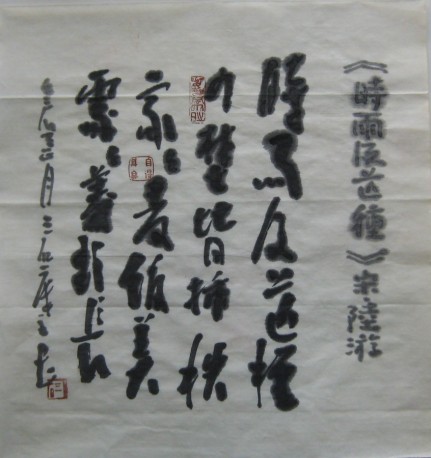 《時雨及芒種》宋陸游
時雨及芒種
四野皆插秧
家々麥飯美
處々菱歌長
月三石